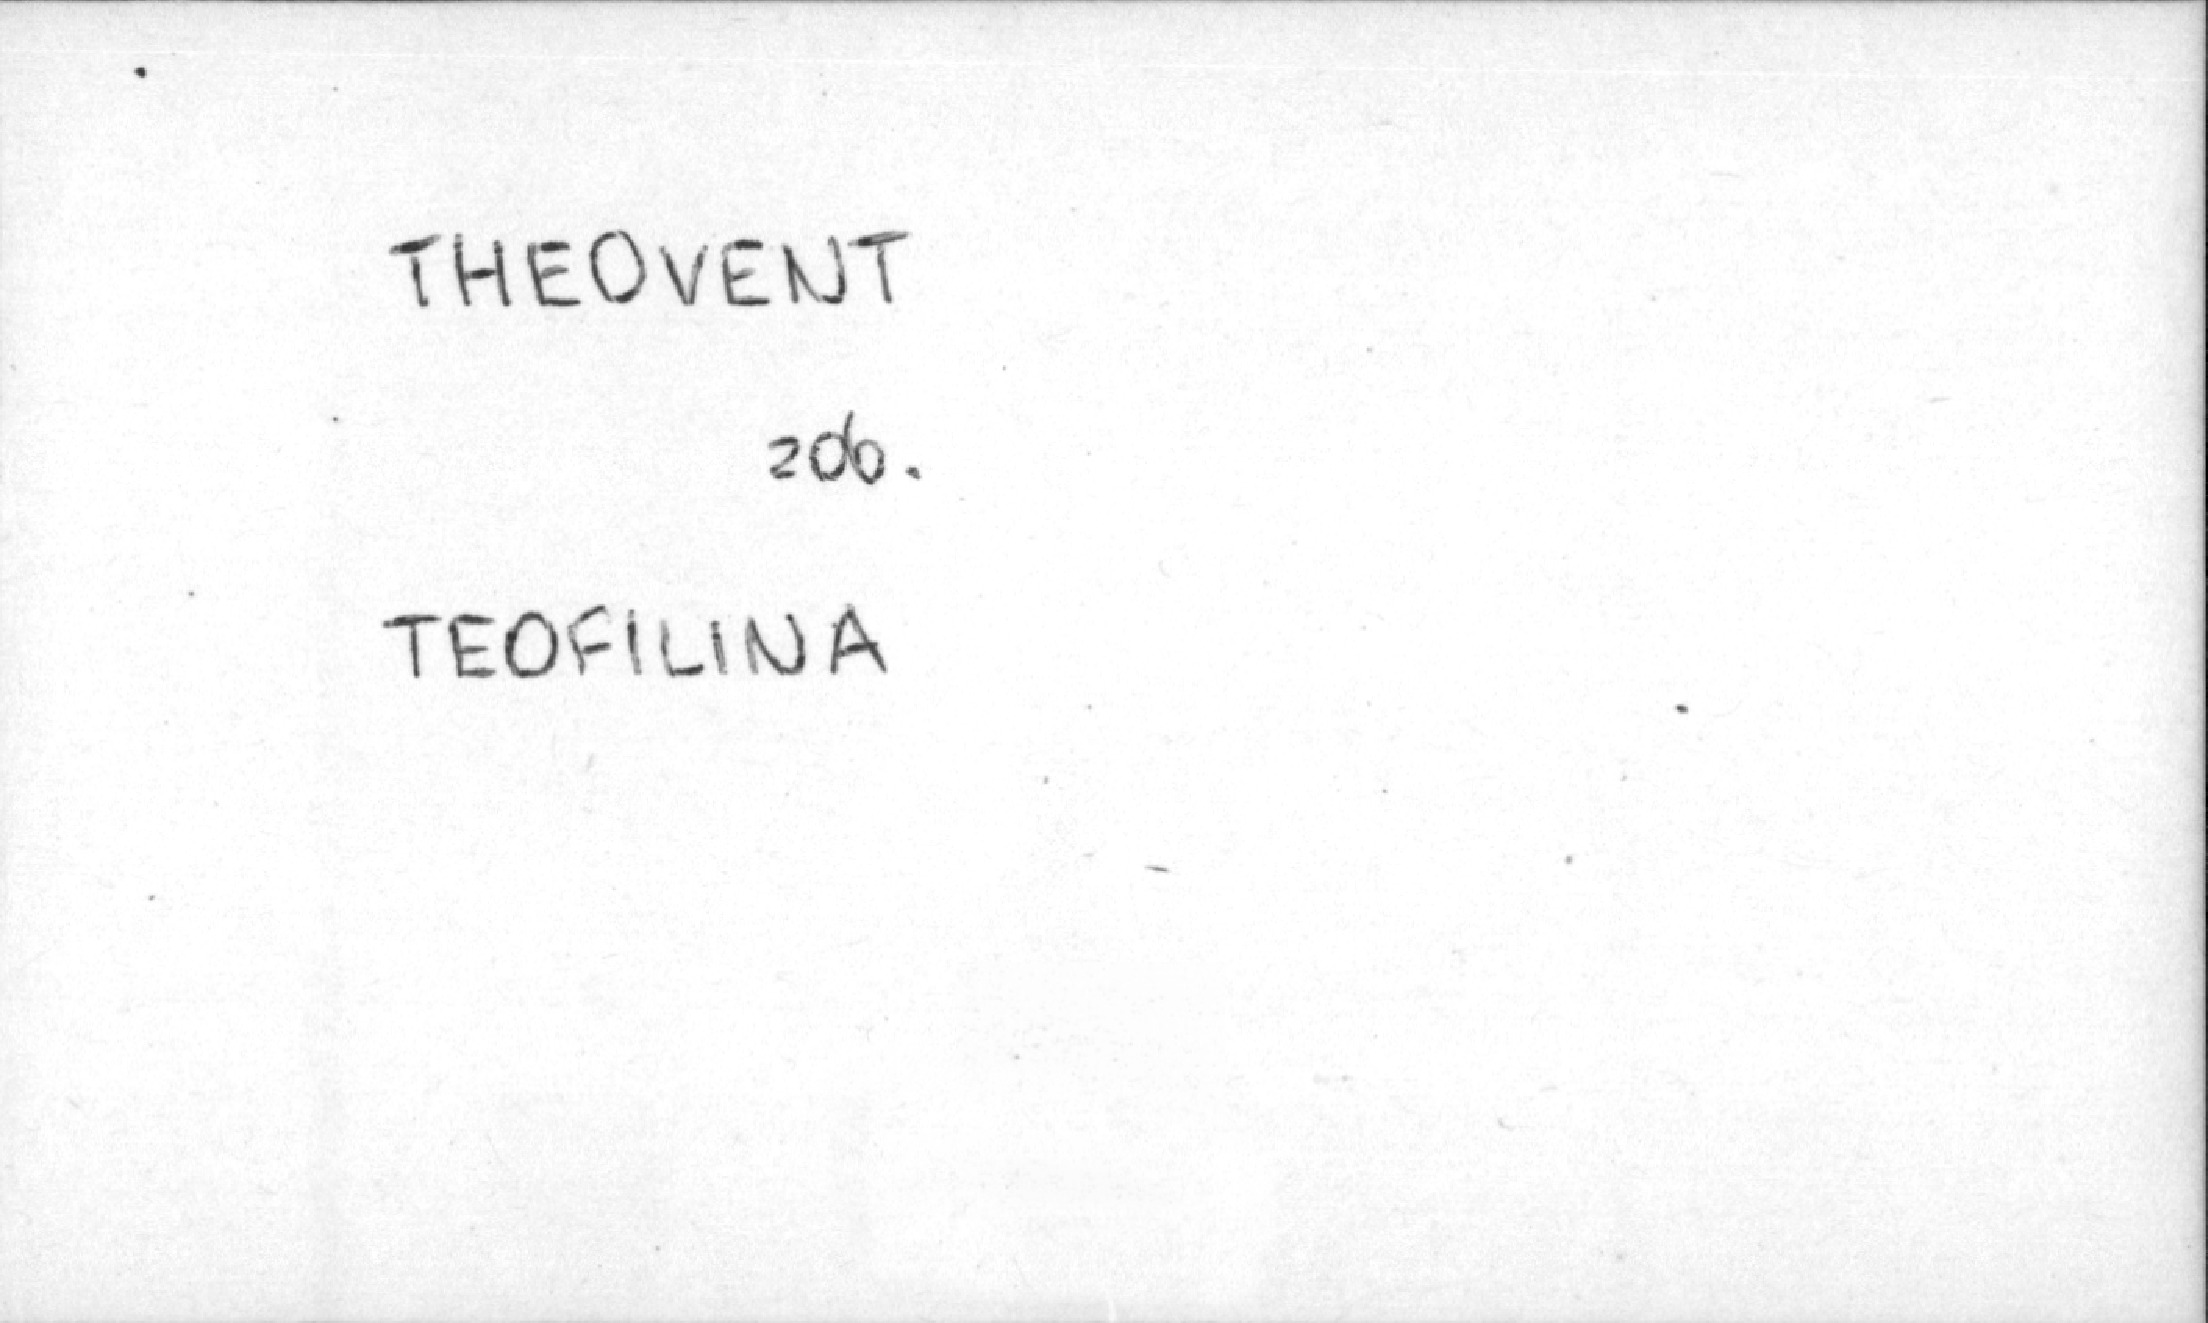 THEOVENT
zob.
TEOFILINA